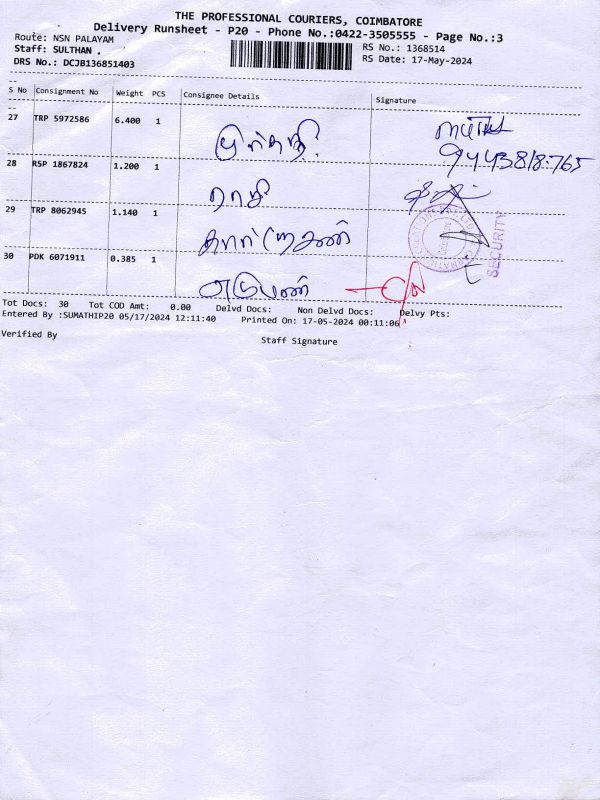 THE PROFESSIONAL COURIERS, COIMBATORE
Delivery Runsheet - P20 - Phone No.:0422-3505555 - Page No.:3
Route: NSN PALAYAM
RS No.: 1368514
Staff: SULTHAN .
RS Date: 17-May-2024
DRS No.: DCJB136851403
S No Consignment No Weight PCS Consignee Details Signature
27 TRP 5972586 6.400 1
28 RSP 1867824 1.200 1 ராசி
29 TRP 8062945 1.140 1
SECURITY
30 PDK 6071911 0.385 1
Tot Docs: 30 Tot COD Amt: 0.00 Delvd Docs: Non Delvd Docs: Delvy Pts:
Entered By :SUMATHIP20 05/17/2024 12:11:40 Printed On: 17-05-2024 00:11:06
Verified By
Staff Signature